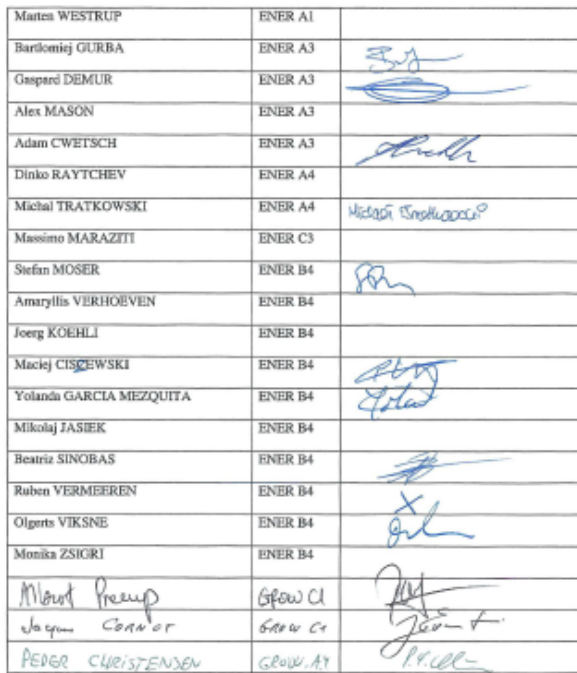 Marten WESTRUP ENER A1
Bartlomiej GURBA ENER A3
Gaspard DEMUR ENER A3
Alex MASON ENER A3
Adam CWETSCH ENER A3
Dinko RAYTCHEV ENER A4
Michal TRATKOWSKI ENER A4
Massimo MARAZITI ENER C3
Stefan MOSER ENER B4
Amaryllis VERHOEVEN ENER B4
Joerg KOEHLI ENER B4
Maciej CISZEWSKI ENER B4
Yolanda GARCIA MEZQUITA ENER B4
Mikolaj JASIEK ENER B4
Beatriz SINOBAS ENER B4
Ruben VERMEEREN ENER B4 X
Olgerts VIKSNE ENER B4
Monika ZSIGRI ENER B4
GROW C1
GROW C1
PEDER CHRISTENSEN GROW.A4